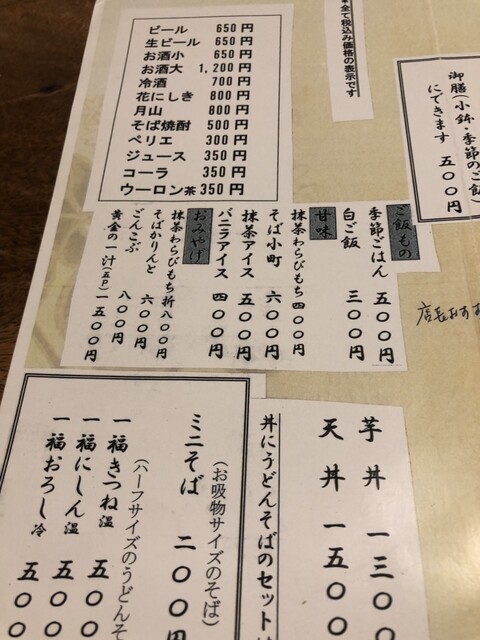 ビール 650円
生ビール 650円
お酒小 650円
お酒大 1,200円
冷酒 700円
花にしき 800円
月山 800円
そば焼酎 500円
ペリエ 300円
ジュース 350円
コーラ 350円
ウーロン茶 350円
全て税込み価格の表示です
御膳(小鉢・季節のご飯)
にできます 五〇〇円
ご飯もの
季節ごはん 五〇〇円
白ご飯 三〇〇円
甘味
抹茶わらびもち 四〇〇円
そば小町 六〇〇円
抹茶アイス 五〇〇円
バニラアイス 四〇〇円
おみやげ
抹茶わらびもち折 八〇〇円
そばかりんと 六〇〇円
ごんこぶ 八〇〇円
黄金の一汁(五P) 一五〇〇円
店長おすす
芋丼 一三〇〇
天丼 一五〇〇
丼にうどんそばのセット
(お吸物サイズのそば)
ミニそば 二〇〇円
(ハーフサイズのうどんそ
一福きつね温 五〇〇
一福にしん温 五〇〇
一福おろし冷 五〇〇